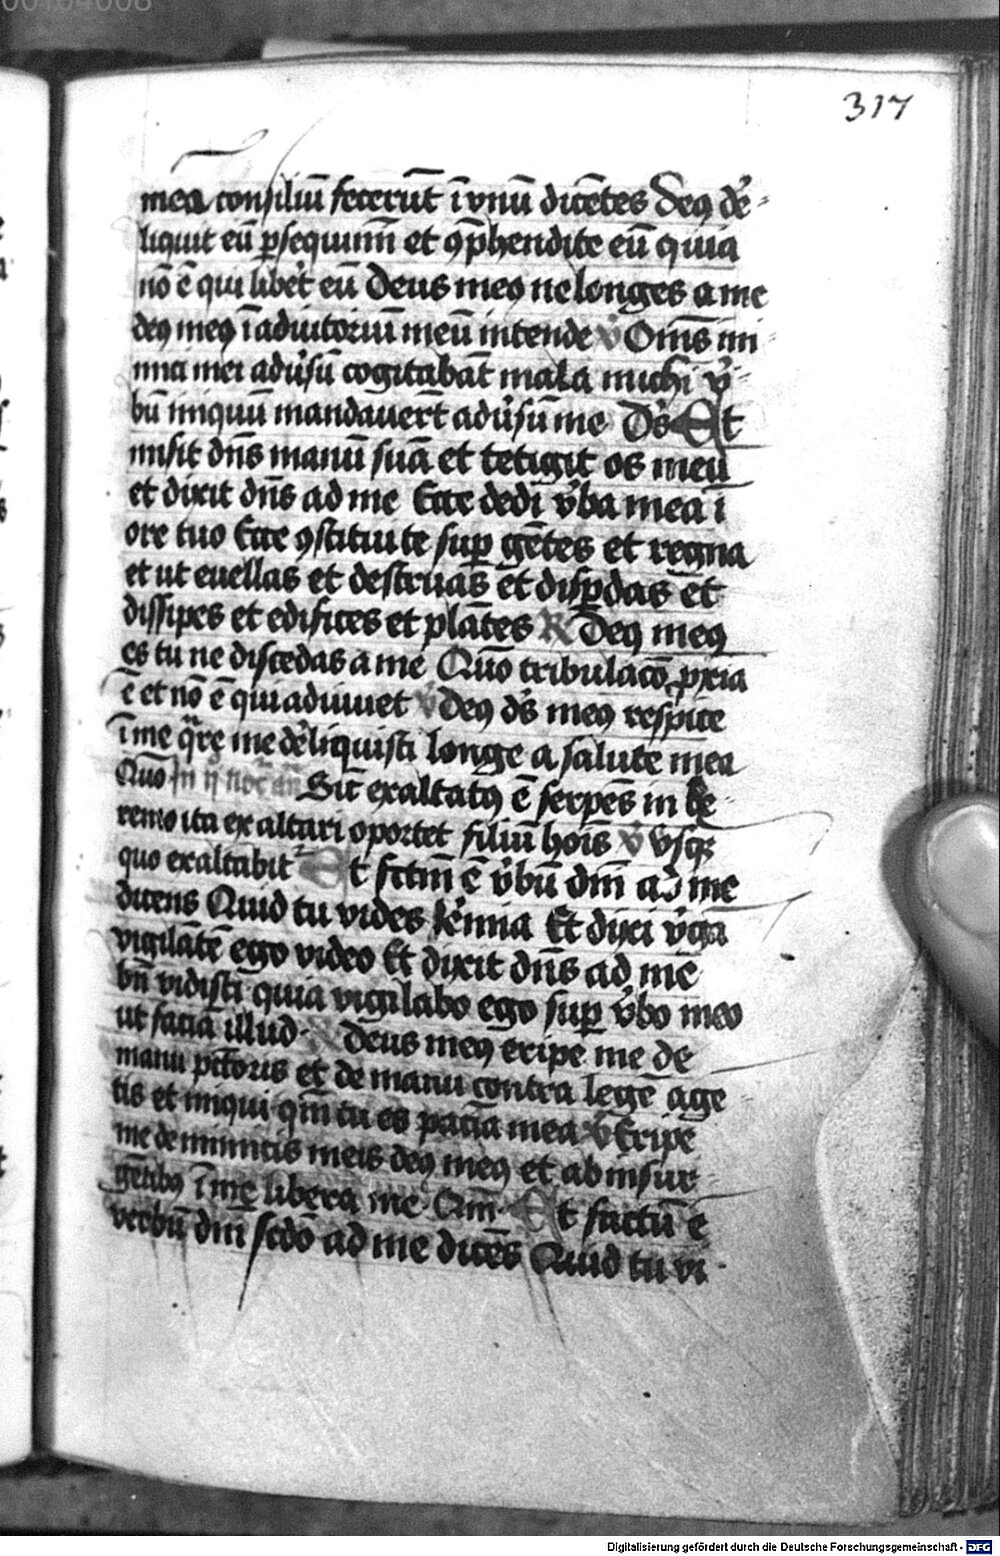 317
mea consiliū fecerūt ī vnū dicētes Deꝯ de᷒
liquit eū ꝑsequimī et ꝯp̄hendite eū quia
nō ē qui liber̄et eū Deus meꝯ ne longes a me
deꝯ meꝯ ī adiutoriū meū intende v̄ Om̄s ini
mici mei adu᷒sū cogitabāt mala michi v᷒
bū iniquū mandauer̄t adu᷒sū me Ds̄ Et
misit dn̄s manū suā et tetigit os meū
et dixit dn̄s ad me Ecce dedi v᷒ba mea ī
ore tuo Ecce ꝯstitui te suꝑ gētes et regna
et ut euellas et destruas et disꝑdas et
dissipes et edifices et plātes R Deꝯ meꝯ
es tu ne discedas a me Qm̄o tribulacō ꝓxīa
ē et nō ē qui adiuuet v̄ Deꝯ ds̄ meꝯ respice
ī me q̄re me de᷒liquisti longe a salute mea
Qm̄o In ij noc̄ an̄ Sic̄ exaltatꝯ ē serpēs in he
remo ita exaltari oportet filiū hoīs v̄ vsq̄
quo exaltabit᷒ Et fctm̄ ē v᷒bū dn̄i ad me
dicens Quid tu vides Ie᷒mia Et dixi v᷒gā
vigilātē ego video Et dixit dn̄s ad me
bn̄ vidisti quia vigilabo ego suꝑ v᷒bo meo
ut faciā illud R Deus meꝯ eripe me de
manu pcc̄toris et de manu contra legē agē
tis et iniqui qm̄ tu es paciā mea v̄ Eripe
me de inimicis meis deꝯ meꝯ et ab insur
gētibꝯ ī me libera me Qm̄ Et factū ē
verbū dn̄i scd̄o ad me dicēs Quid tu vi
Digitalisierung gefördert durch die Deutsche Forschungsgemeinschaft - DFG